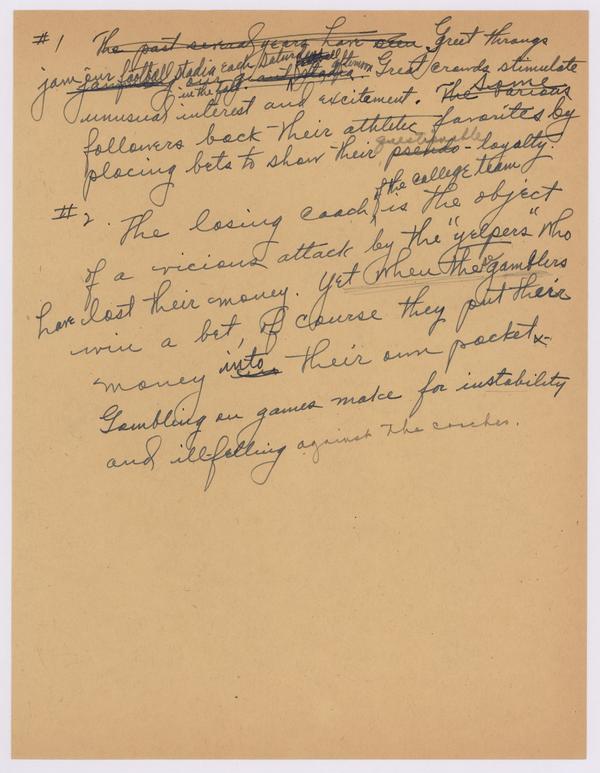 #1 The past several years have seen Great throngs
jam our football stadia each Saturday afternoon
jam in the fall. our giant stadia. Great crowds stimulate
unusual interest and excitement. The various some
followers back their athletic favorites by
placing bets to show their pseudo questionable - loyalty.
#2. The losing coach of the college team is the object
of a vicious attack by the "yelpers" who
have lost their money. Yet when the gamblers
win a bet, of course they put their
money into their own pocket
Gambling on games make for instability
and illfelling against the coaches.